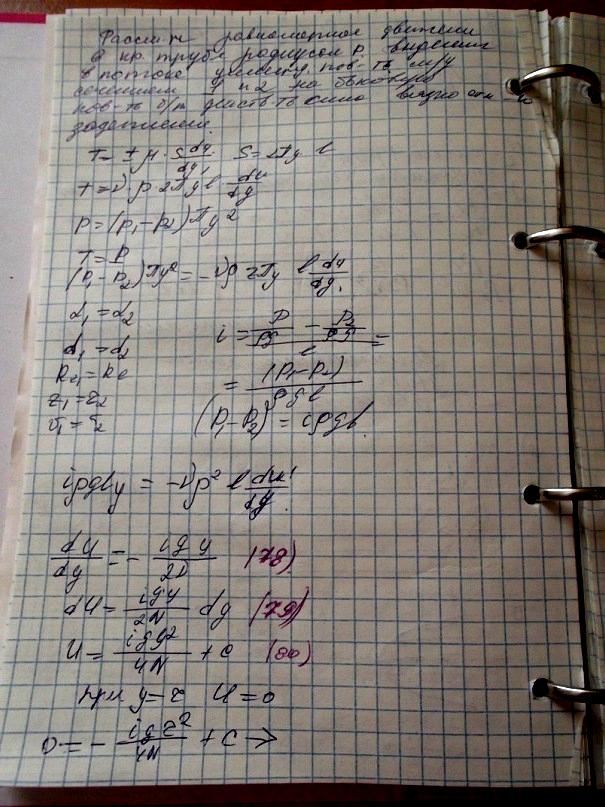 Рассм-м равномерное движение
в кр. трубе радиусом r выделим
в потоке цилиндр. пов-ть м/у
сечением 1 и 2 на боковую
пов-ть б/т действ-ть сила вязкости
T = ± μ · S du/dy, S = 2πy l
T = νρ 2πy l du/dy
P = (p₁ - p₂) πy²
T = P
(p₁ - p₂) πy² = -νρ 2πy l du/dy
α₁ = α₂
α₁ = α₂
Re₁ = Re
z₁ = z₂
υ₁ = υ₂
i = (P/ρg - P₂/ρg)/l =
= (p₁ - p₂)/ρgl
(p₁ - p₂) = iρgl
iρgly = -νρ2 l du/dy
dU/dy = - igy/2ν (78)
dU = igy/2ν dy (79)
U = igy²/4ν + C (80)
при y = r U = 0
0 = - igr²/4ν + C →